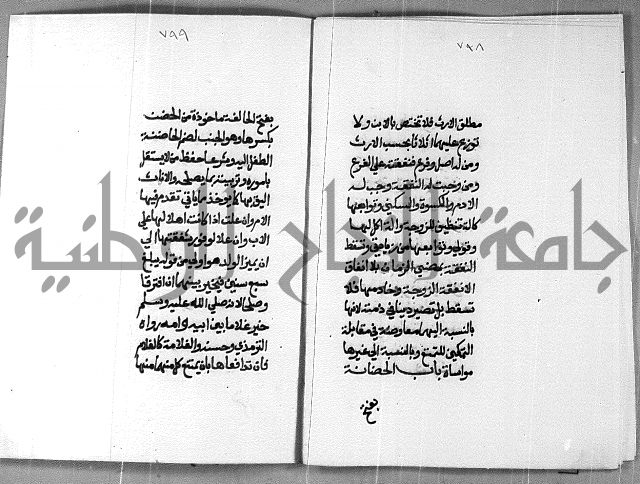 ٧٩٨
مطلق الارث فلا تختص بالابن ولا
توزع عليهما اثلاثا بحسب الارث
ومن له اصل وفرع فنفقته على الفرع
ومن وجبت له النفقة وجب له
الادم والكسوة والسكنى وتوابعها
كالة تنظيف للزوجة والة اكل لها
وتسقط
النفقة بمضي الزمان بلا انفاق
الا نفقة الزوجة وخادمها فلا
تسقط بل تصير دينا في ذمته لانها
بالنسبة اليهما معاوضة في مقابلة
التمكين للتمتع وبالنسبة الى غيرها
مواساة باب الحضانة
بفتح
٧٩٩
بفتح الحا لغة ماخوذة من الحضن
بكسرها وهو الجنب لضم الحاضنة
الطفل اليه وشرعا حفظ من لا يستقل
باموره وتربيته بما يصلحه والاناث
اليق بها
الام وان علت اذا كانت اهلا لها على
الاب وان علا لوفور شفقتها الى
ان يميز الولد
سبع سنين فيخير بينهما ان افترقا
وصلحا لانه صلى الله عليه وسلم
خير غلاما بين ابيه وامه رواه
الترمذي وحسنه والغلامة كالغلام
فان تدافعاها بان يمتنع كل منهما منها
جامعة النجاح الوطنية